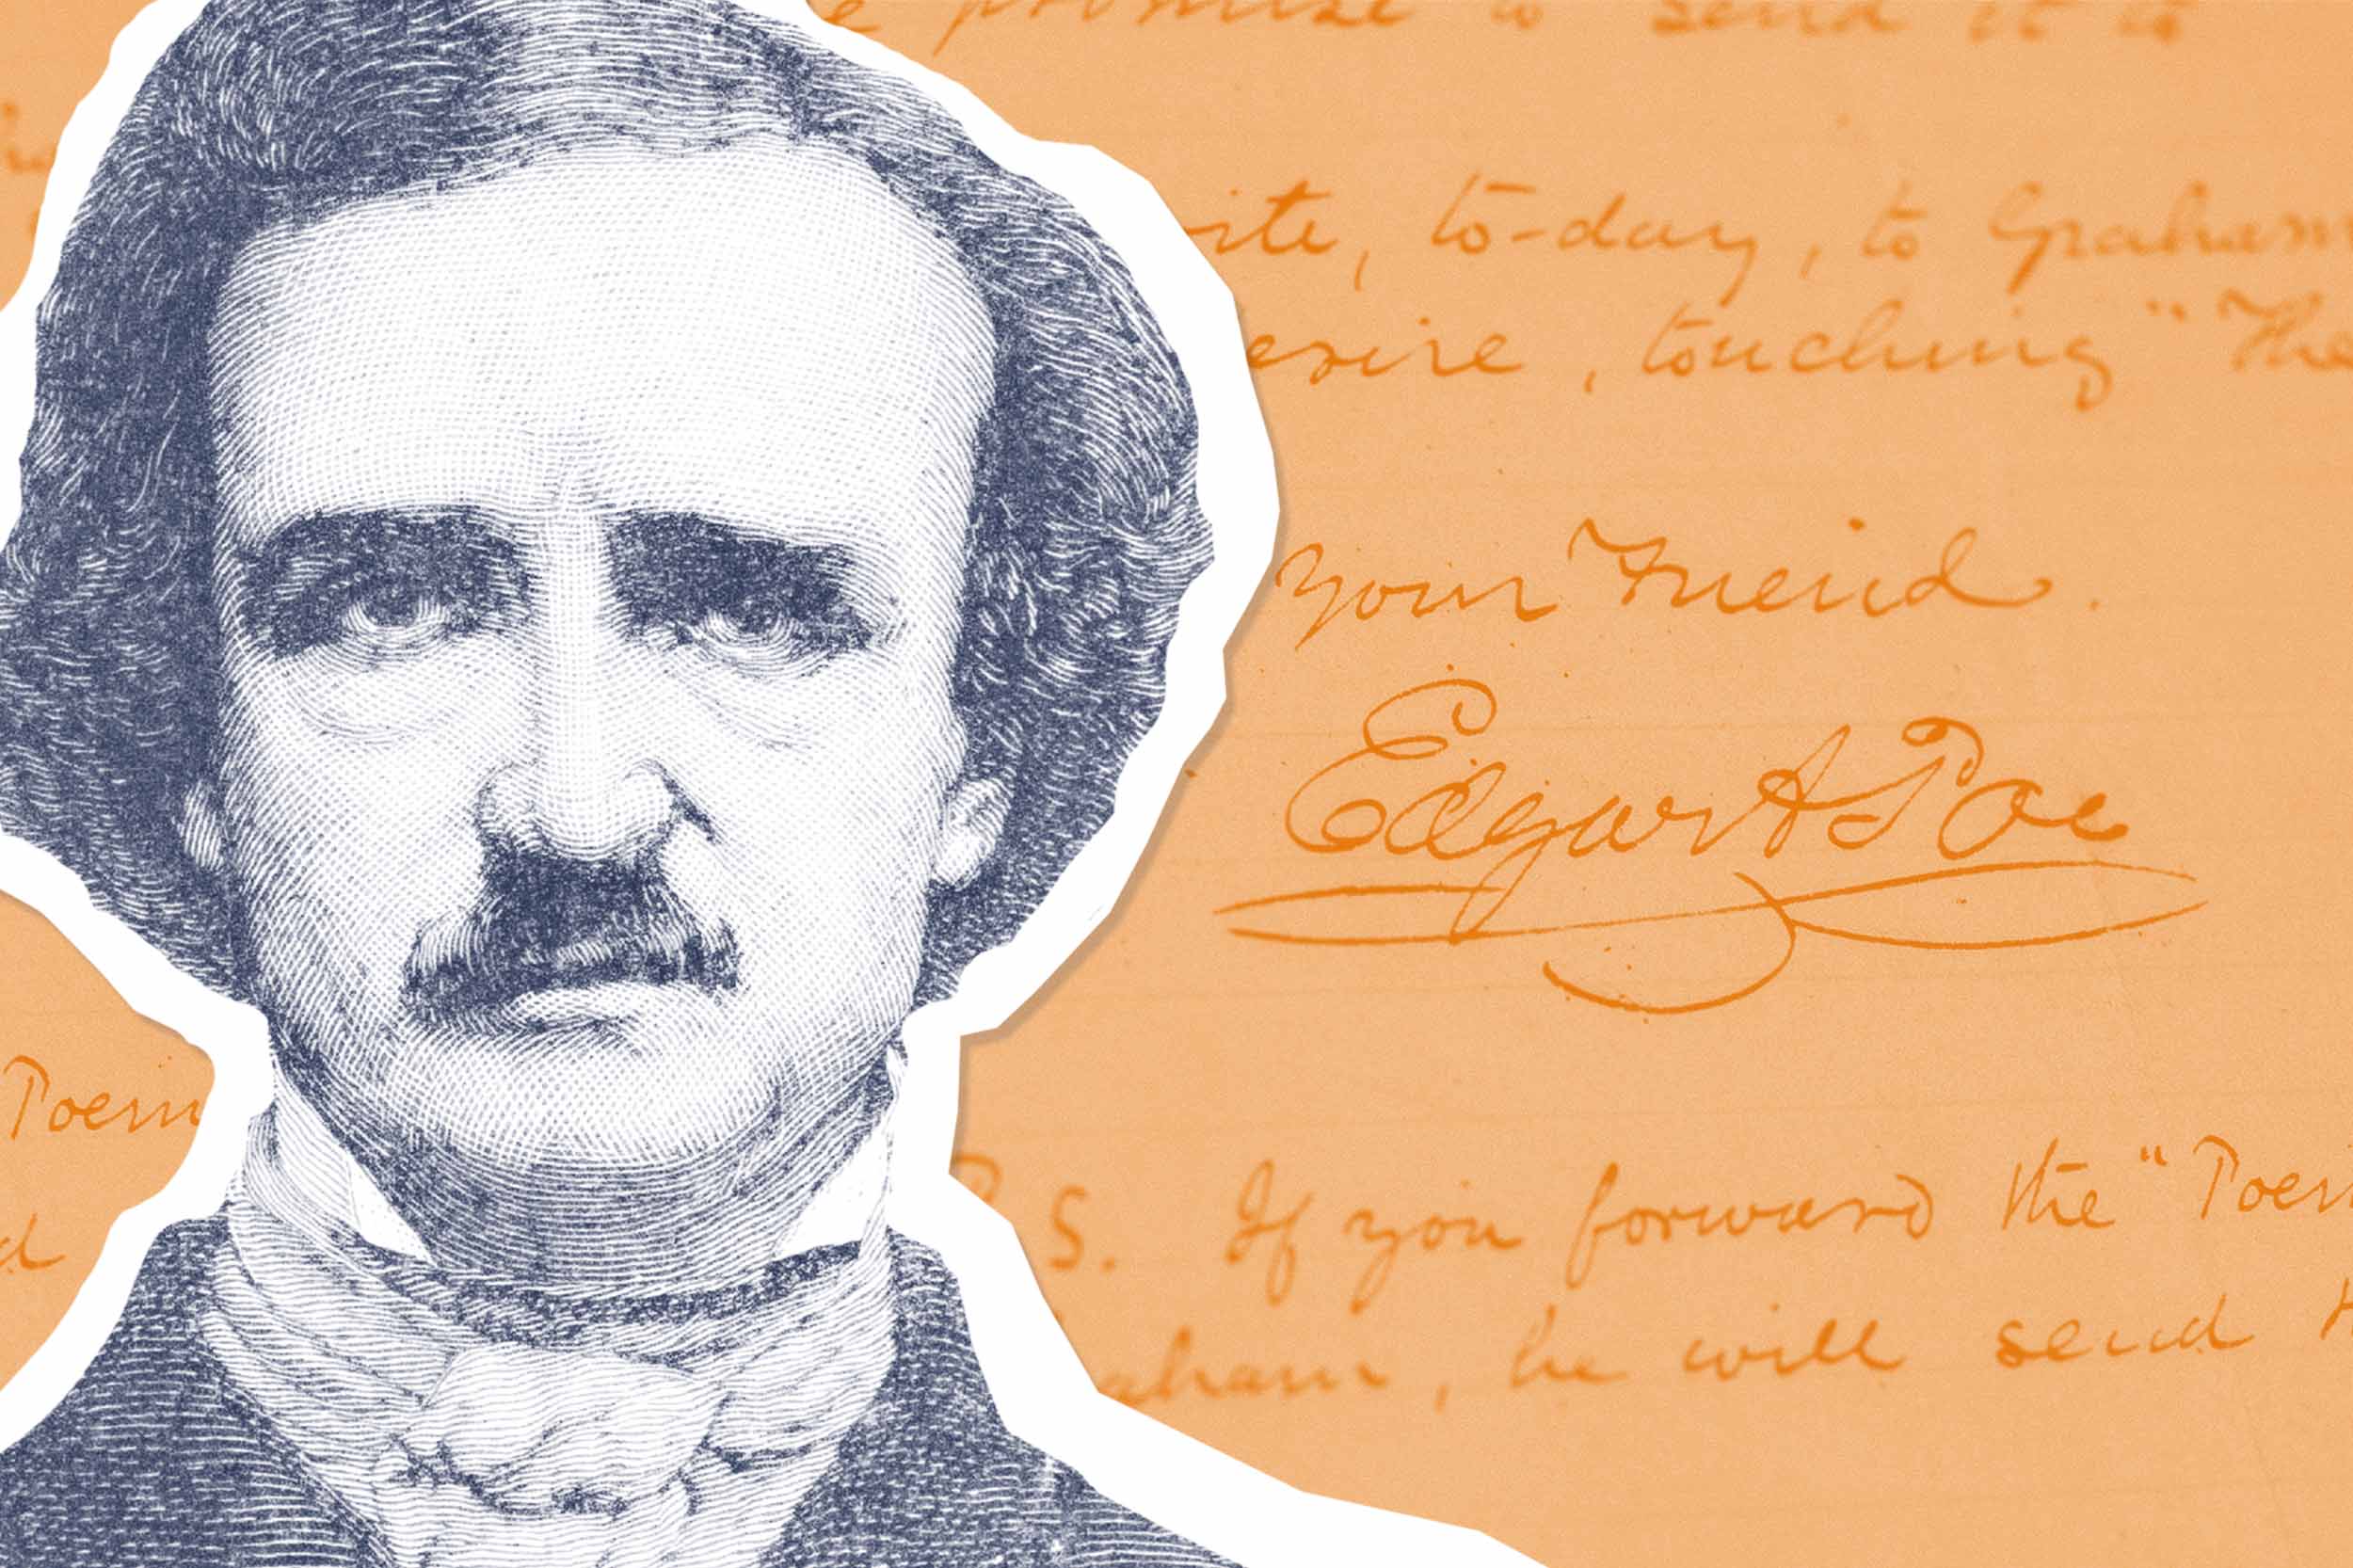 promise to send it to
to-day, to Graham
touching "The
Your Friend.
Edgar A Poe
Poem
P.S. If you forward the "Poem
he will send